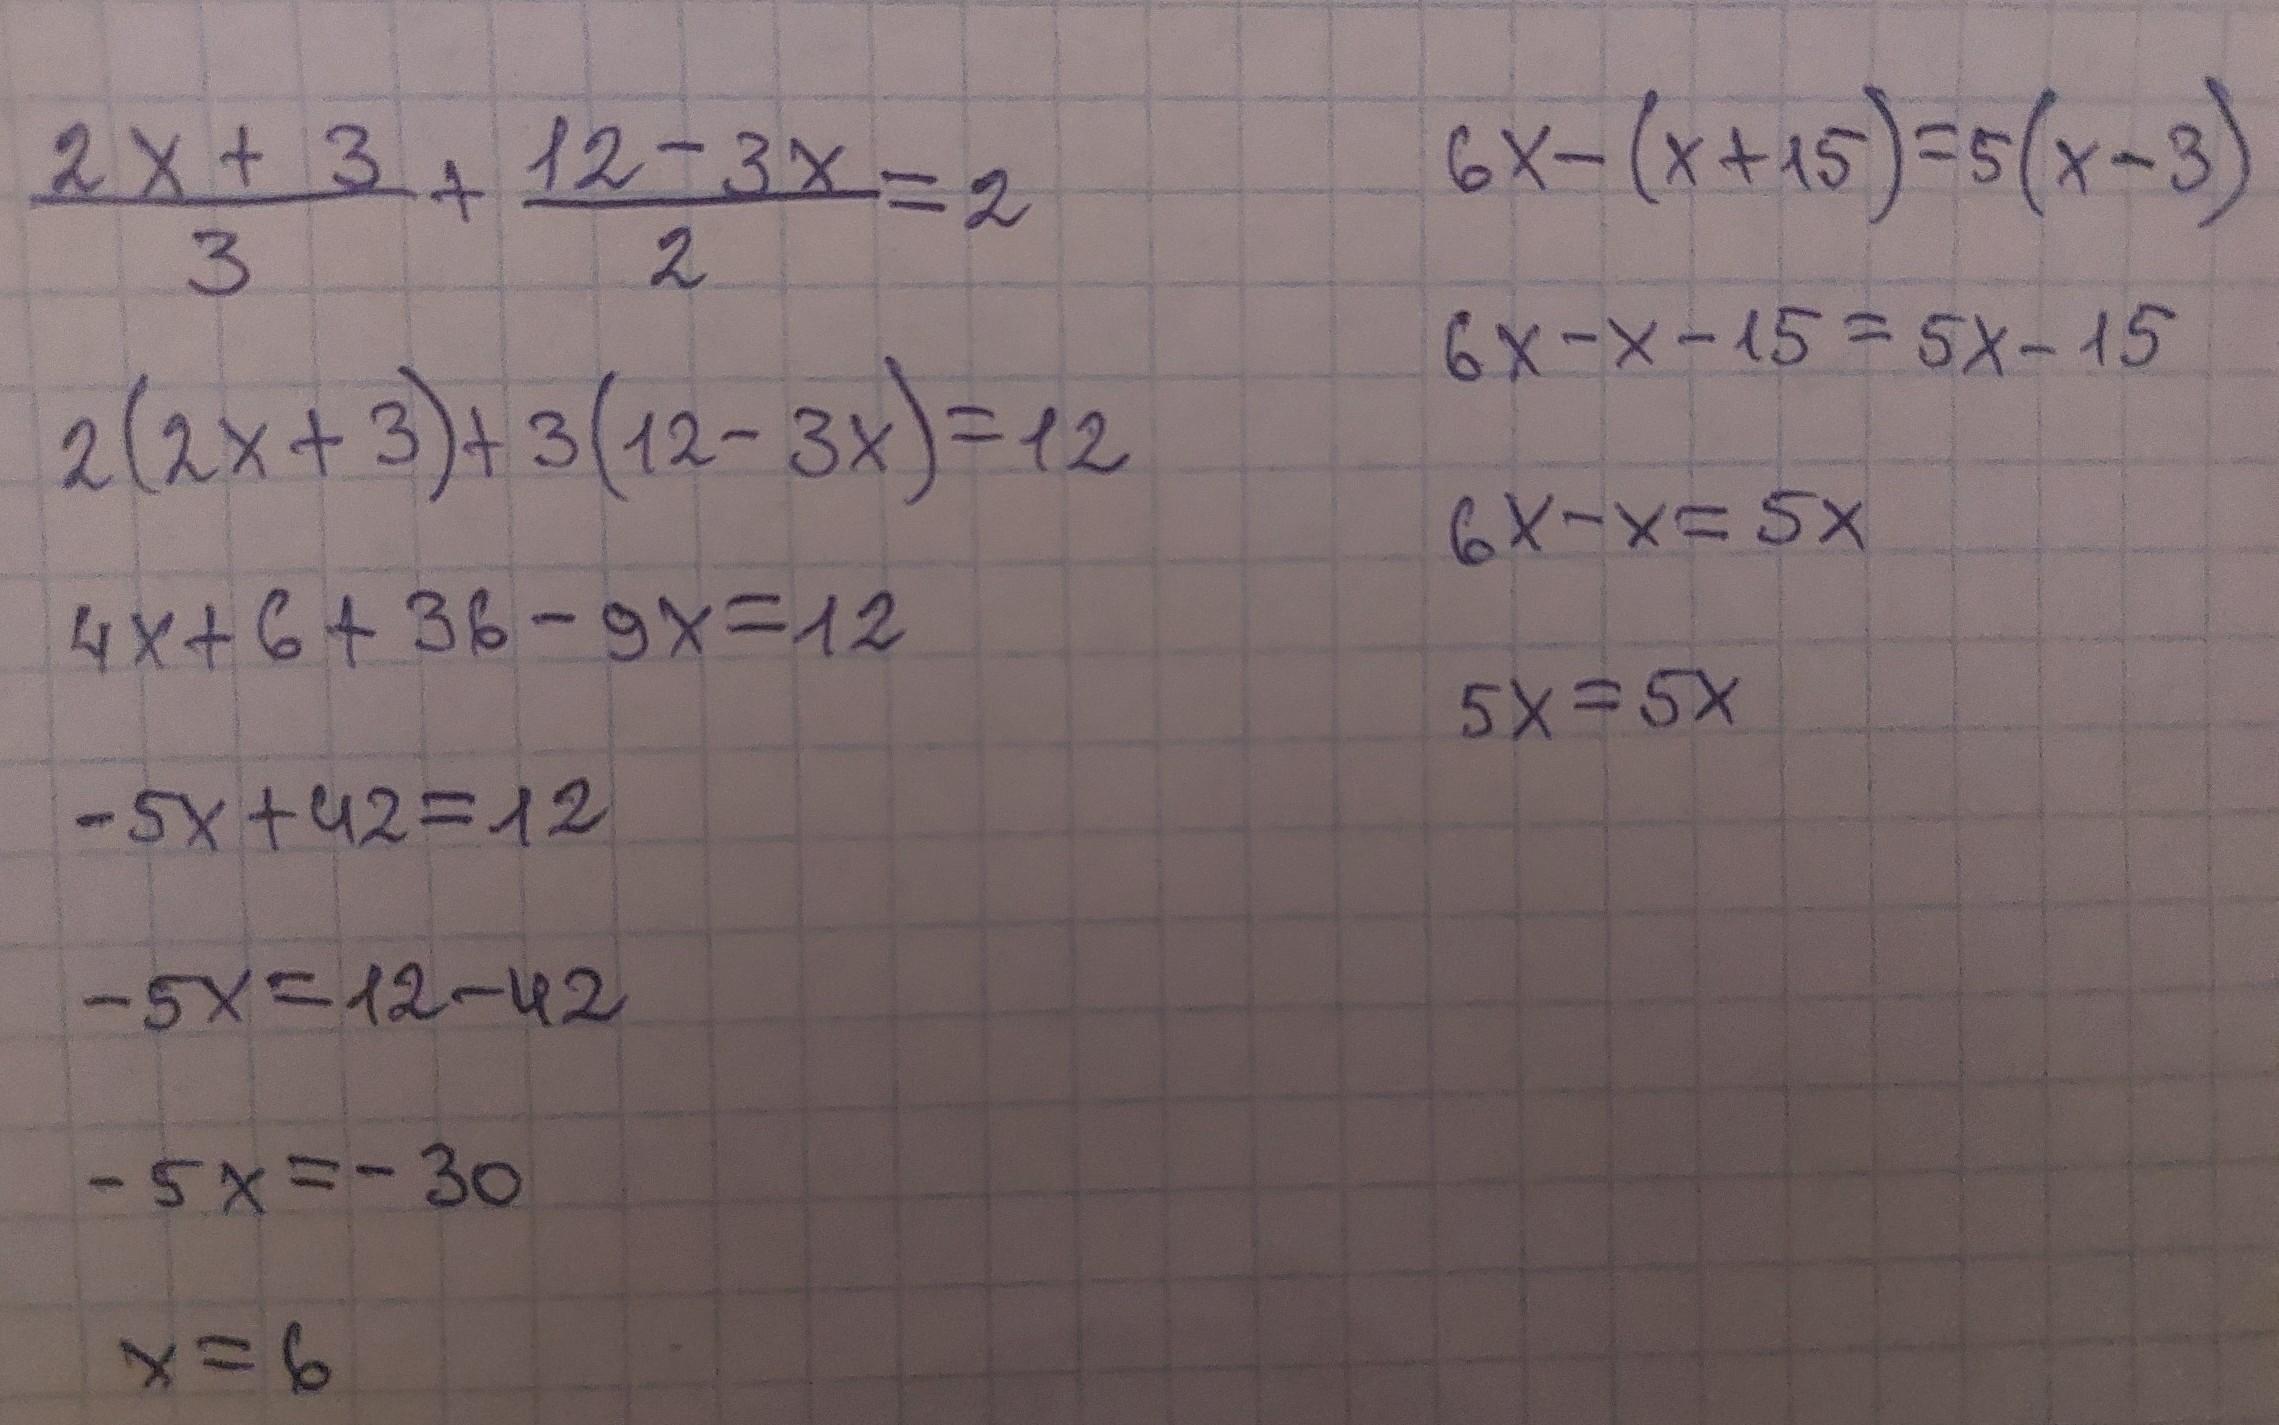 (2x + 3)/3 + (12 - 3x)/2 = 2
2(2x + 3) + 3(12 - 3x) = 12
4x + 6 + 36 - 9x = 12
-5x + 42 = 12
-5x = 12 - 42
-5x = -30
x = 6
6x - (x + 15) = 5(x - 3)
6x - x - 15 = 5x - 15
6x - x = 5x
5x = 5x